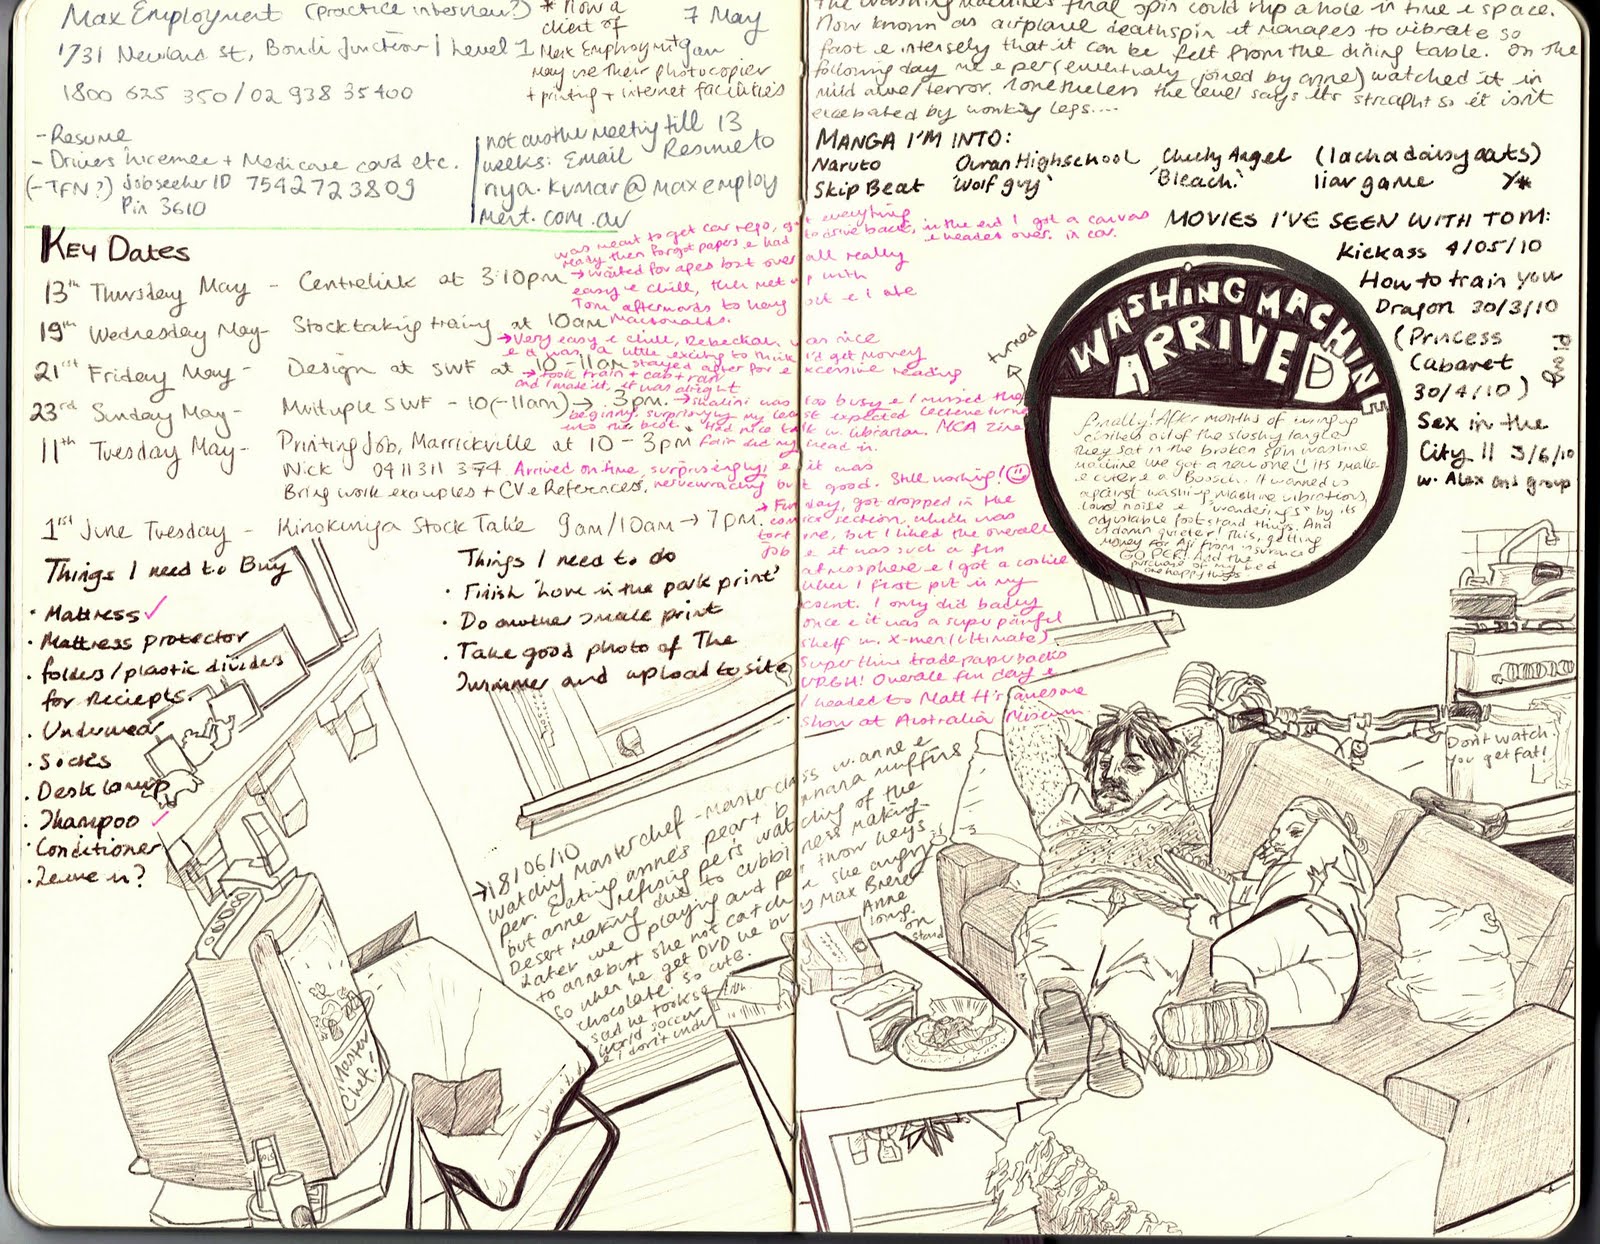 Max Employment (practice interview?)
* Now a
client of
Max Employment & can
may use their photocopier
+ printing + internet facilities
7 May
1/31 Newland St, Bondi Junction | Level 1
1800 625 350 / 02 938 35400
- Resume
- Drivers Licence + Medicare card etc.
(- TFN?) Jobseeker ID 7542723809
Pin 3610
not another meeting till 13
weeks: Email Resume to
riya.kumar@maxemploy
ment.com.au
KEY DATES
13th Thursday May - Centrelink at 3:10pm
was meant to get car rego, got everything
ready then forgot papers & had to drive back, in the end I got a canvas
& headed over in car.
→ waited for ages but over all really
easy & chill, then met up with
Tom afterwards to hang out & I ate
Macdonalds.
19th Wednesday May - Stocktaking training at 10am
→ Very easy & chill, Rebeckah was nice
& it was a little exciting to think I'd get money
21st Friday May - Design at SWF at 10-11am
stayed after for excessive reading
→ took train + cab + ran
and I made it, it was alright
23rd Sunday May - Multiple SWF - 10(-11am) → 3pm.
11th Tuesday May - Printing Job, Marrickville at 10 - 3pm
Nick 0411 311 374
Bring work examples + CV & References.
Arrived on time, surprisingly, & it was
nervewracking but good. Still working!
1st June Tuesday - Kinokuniya Stock Take 9am/10am → 7pm.
→ Fun day, got dropped in the
comics section, which was
me, but I liked the overall
& it was such a fun
atmosphere & I got a cookie
when I first put in my
count. I only did badly
once & it was a super painful
shelf w. X-men (Ultimate)
Super thin trade paperbacks
URGH! Overall fun day &
I headed to Matt H's awesome
show at Australia Museum.
Things I need to Buy
· Mattress ✓
· Mattress protector
· folders/plastic dividers
for Reciepts.
· Underwear
· Socks
· Desk lamp
· Shampoo ✓
· Conditioner
· Leave in?
Things I need to do
· Finish 'Love in the park print'
· Do another small print
· Take good photo of The
Swimmer and upload to site
→ 18/06/10
Watching Masterchef - Masterclass w. anne &
per. Eating anne's pear + banana muffins
but anne refusing per's watching of the
Desert making due to
Later we playing and per throw keys
to anne but she not catch & she angry
So when he get DVD he buy Max Brener
chocolate. So cute. Anne
said he took so long.
World soccer on
& i don't understand
Master
Chef!
The washing machines final spin could rip a hole in time & space.
Now known as airplane deathspin it manages to vibrate so
fast & intensely that it can be felt from the dining table. On the
following day me & per (eventually joined by anne) watched it in
mild awe/terror. Nonetheless the level says its straight so it isn't
excerbated by wonky legs....
MANGA I'M INTO:
Naruto Ouran Highschool Cheeky Angel (lachadaisy oats)
Skip Beat 'Wolf guy' 'Bleach' liar game
MOVIES I'VE SEEN WITH TOM:
Kickass 4/05/10
How to train you
Dragon 30/3/10
(Princess
Cabaret
30/4/10)
Sex in the
City II 3/6/10
w. Alex and group
turned
WASHING MACHINE
ARRIVED
Finally! After months of wringing
clothes out of the slushy tangle
they sat in the broken spin washing
machine we got a new one!! its smaller
& cuter & a Bosch. It warned us
against washing mashine vibrations,
loud noise & "wanderings" by its
adjustable foot stand things. And
GO PER! And the
purchase of my bed
Don't watch
you get fat!